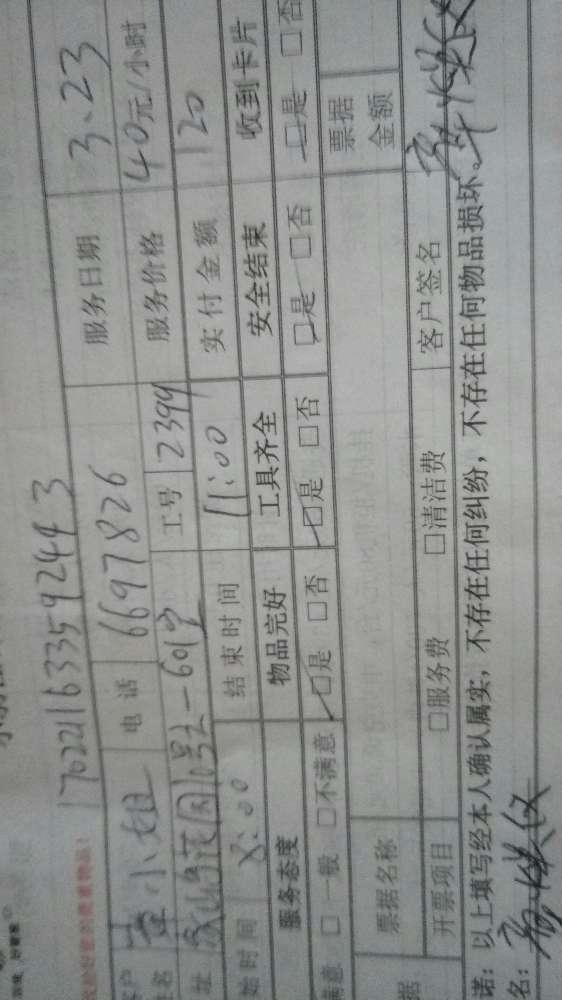 170221163359244 3
客户 小姐 电话 6697826 服务日期 3.23
姓名 工号 2394 服务价格 40元/小时
址 花园10号2-601室
始时间 8:00 结束时间 11:00 实付金额 120
服务态度 物品完好 工具齐全 安全结束 收到卡片
满意 □一般 □不满意 □是 □否 □是 □否 □是 □否 □是 □否
据 票据名称 票据金额
开票项目 □服务费 □清洁费 客户签名
诺：以上填写经本人确认属实，不存在任何纠纷，不存在任何物品损坏。
名：